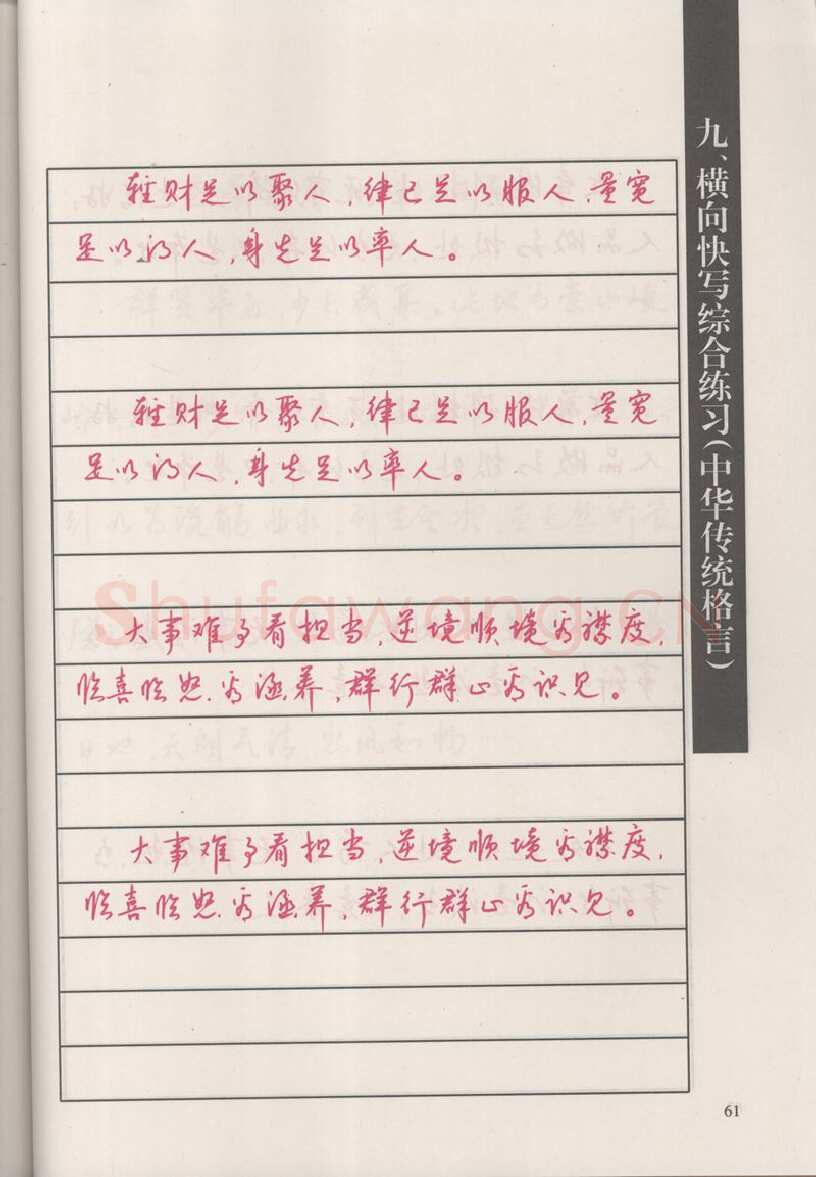 九、横向快写综合练习(中华传统格言)
轻财足以聚人,律己足以服人,量宽
足以得人,身先足以率人。
轻财足以聚人,律己足以服人,量宽
足以得人,身先足以率人。
大事难事看担当,逆境顺境看襟度,
临喜临怒看涵养,群行群止看识见。
大事难事看担当,逆境顺境看襟度,
临喜临怒看涵养,群行群止看识见。
Shufawang.CN
61